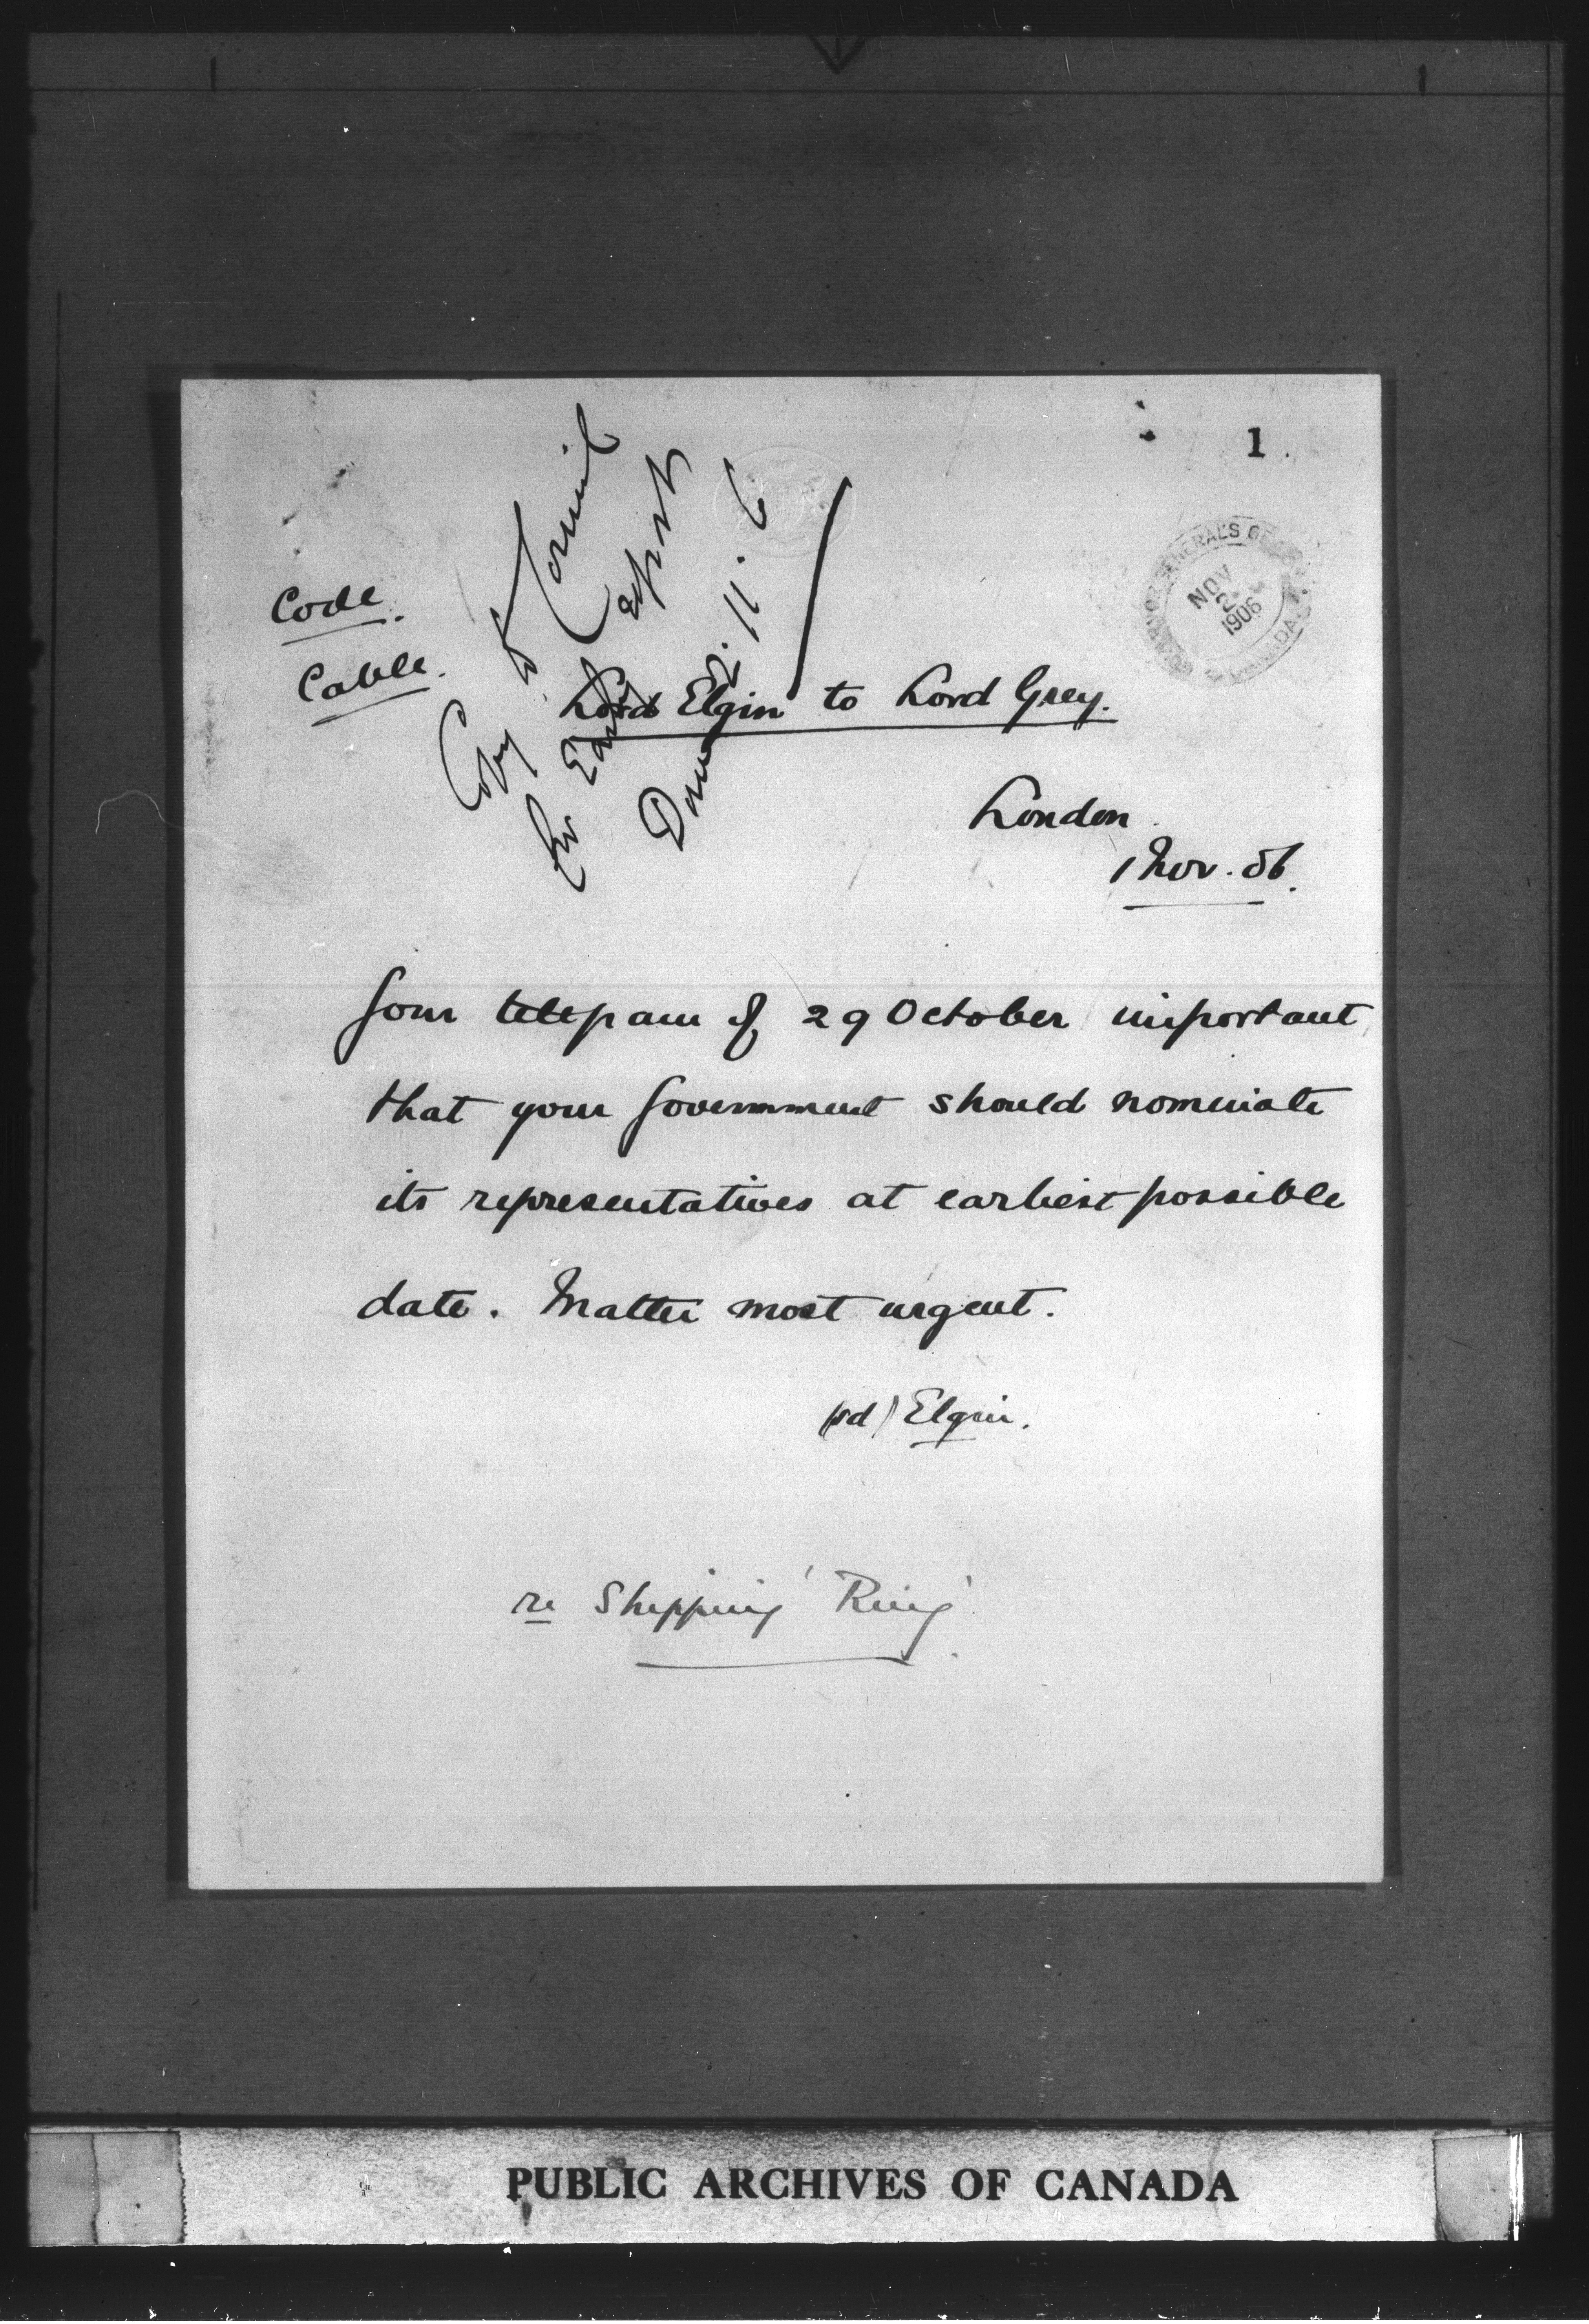 1
GOVERNOR GENERAL'S OFFICE
NOV
2
1906
CANADA
Code.
Cable.
Copy to Council
for Early
Done 2.11.6
Lord Elgin to Lord Grey.
London
1 Nov. 06.
Your telegram of 29 October important
that your Government should nominate
its representatives at earliest possible
date. Matter most urgent.
(sd) Elgin.
re Shipping 'Ring'.
PUBLIC ARCHIVES OF CANADA